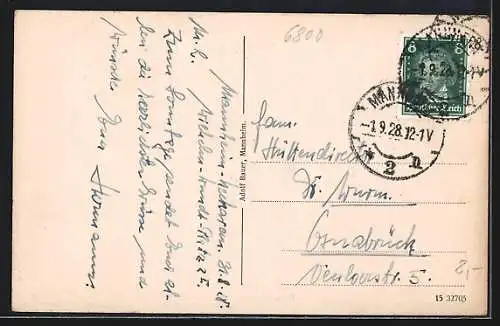 6800
8
Deutsches Reich
MANNHEIM
1.9.28.12-1V
* 2 n
Mannheim-Neckarau, 31.8.28.
M. L.
Zum Sonntag sendet Euch al-
len die herzlichsten Grüsse und
Wünsche Euer Hermann.
Adolf Bauer, Mannheim.
Fam.
Hüttendirektor
Dr. Wurm.
Osnabrück
Venloerstr. 5.
2,-
15 32705